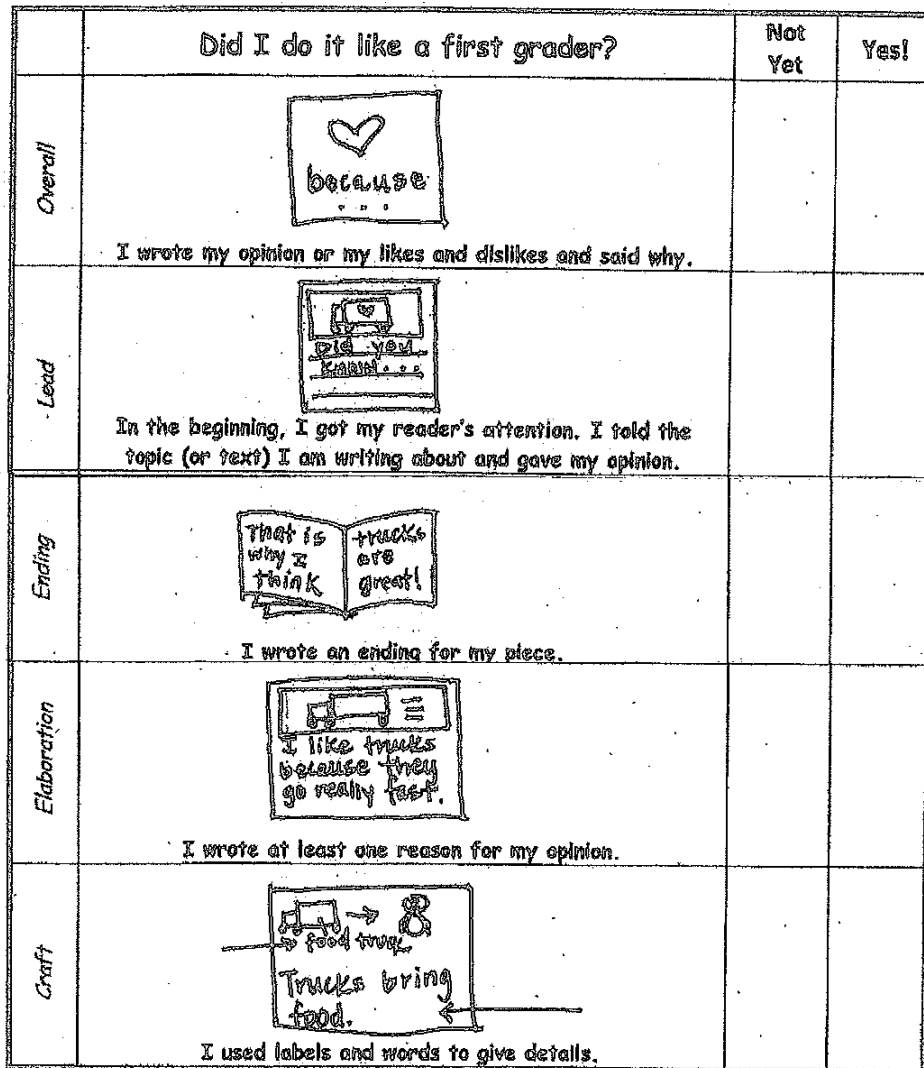 Did I do it like a first grader?
Not
Yet
Yes!
Overall
because
...
I wrote my opinion or my likes and dislikes and said why.
Lead
Did you
know...
In the beginning, I got my reader's attention. I told the
topic (or text) I am writing about and gave my opinion.
Ending
That is
why I
think
trucks
are
great!
I wrote an ending for my piece.
Elaboration
I like trucks
because they
go really fast.
I wrote at least one reason for my opinion.
Craft
food truck
Trucks bring
food.
I used labels and words to give details.